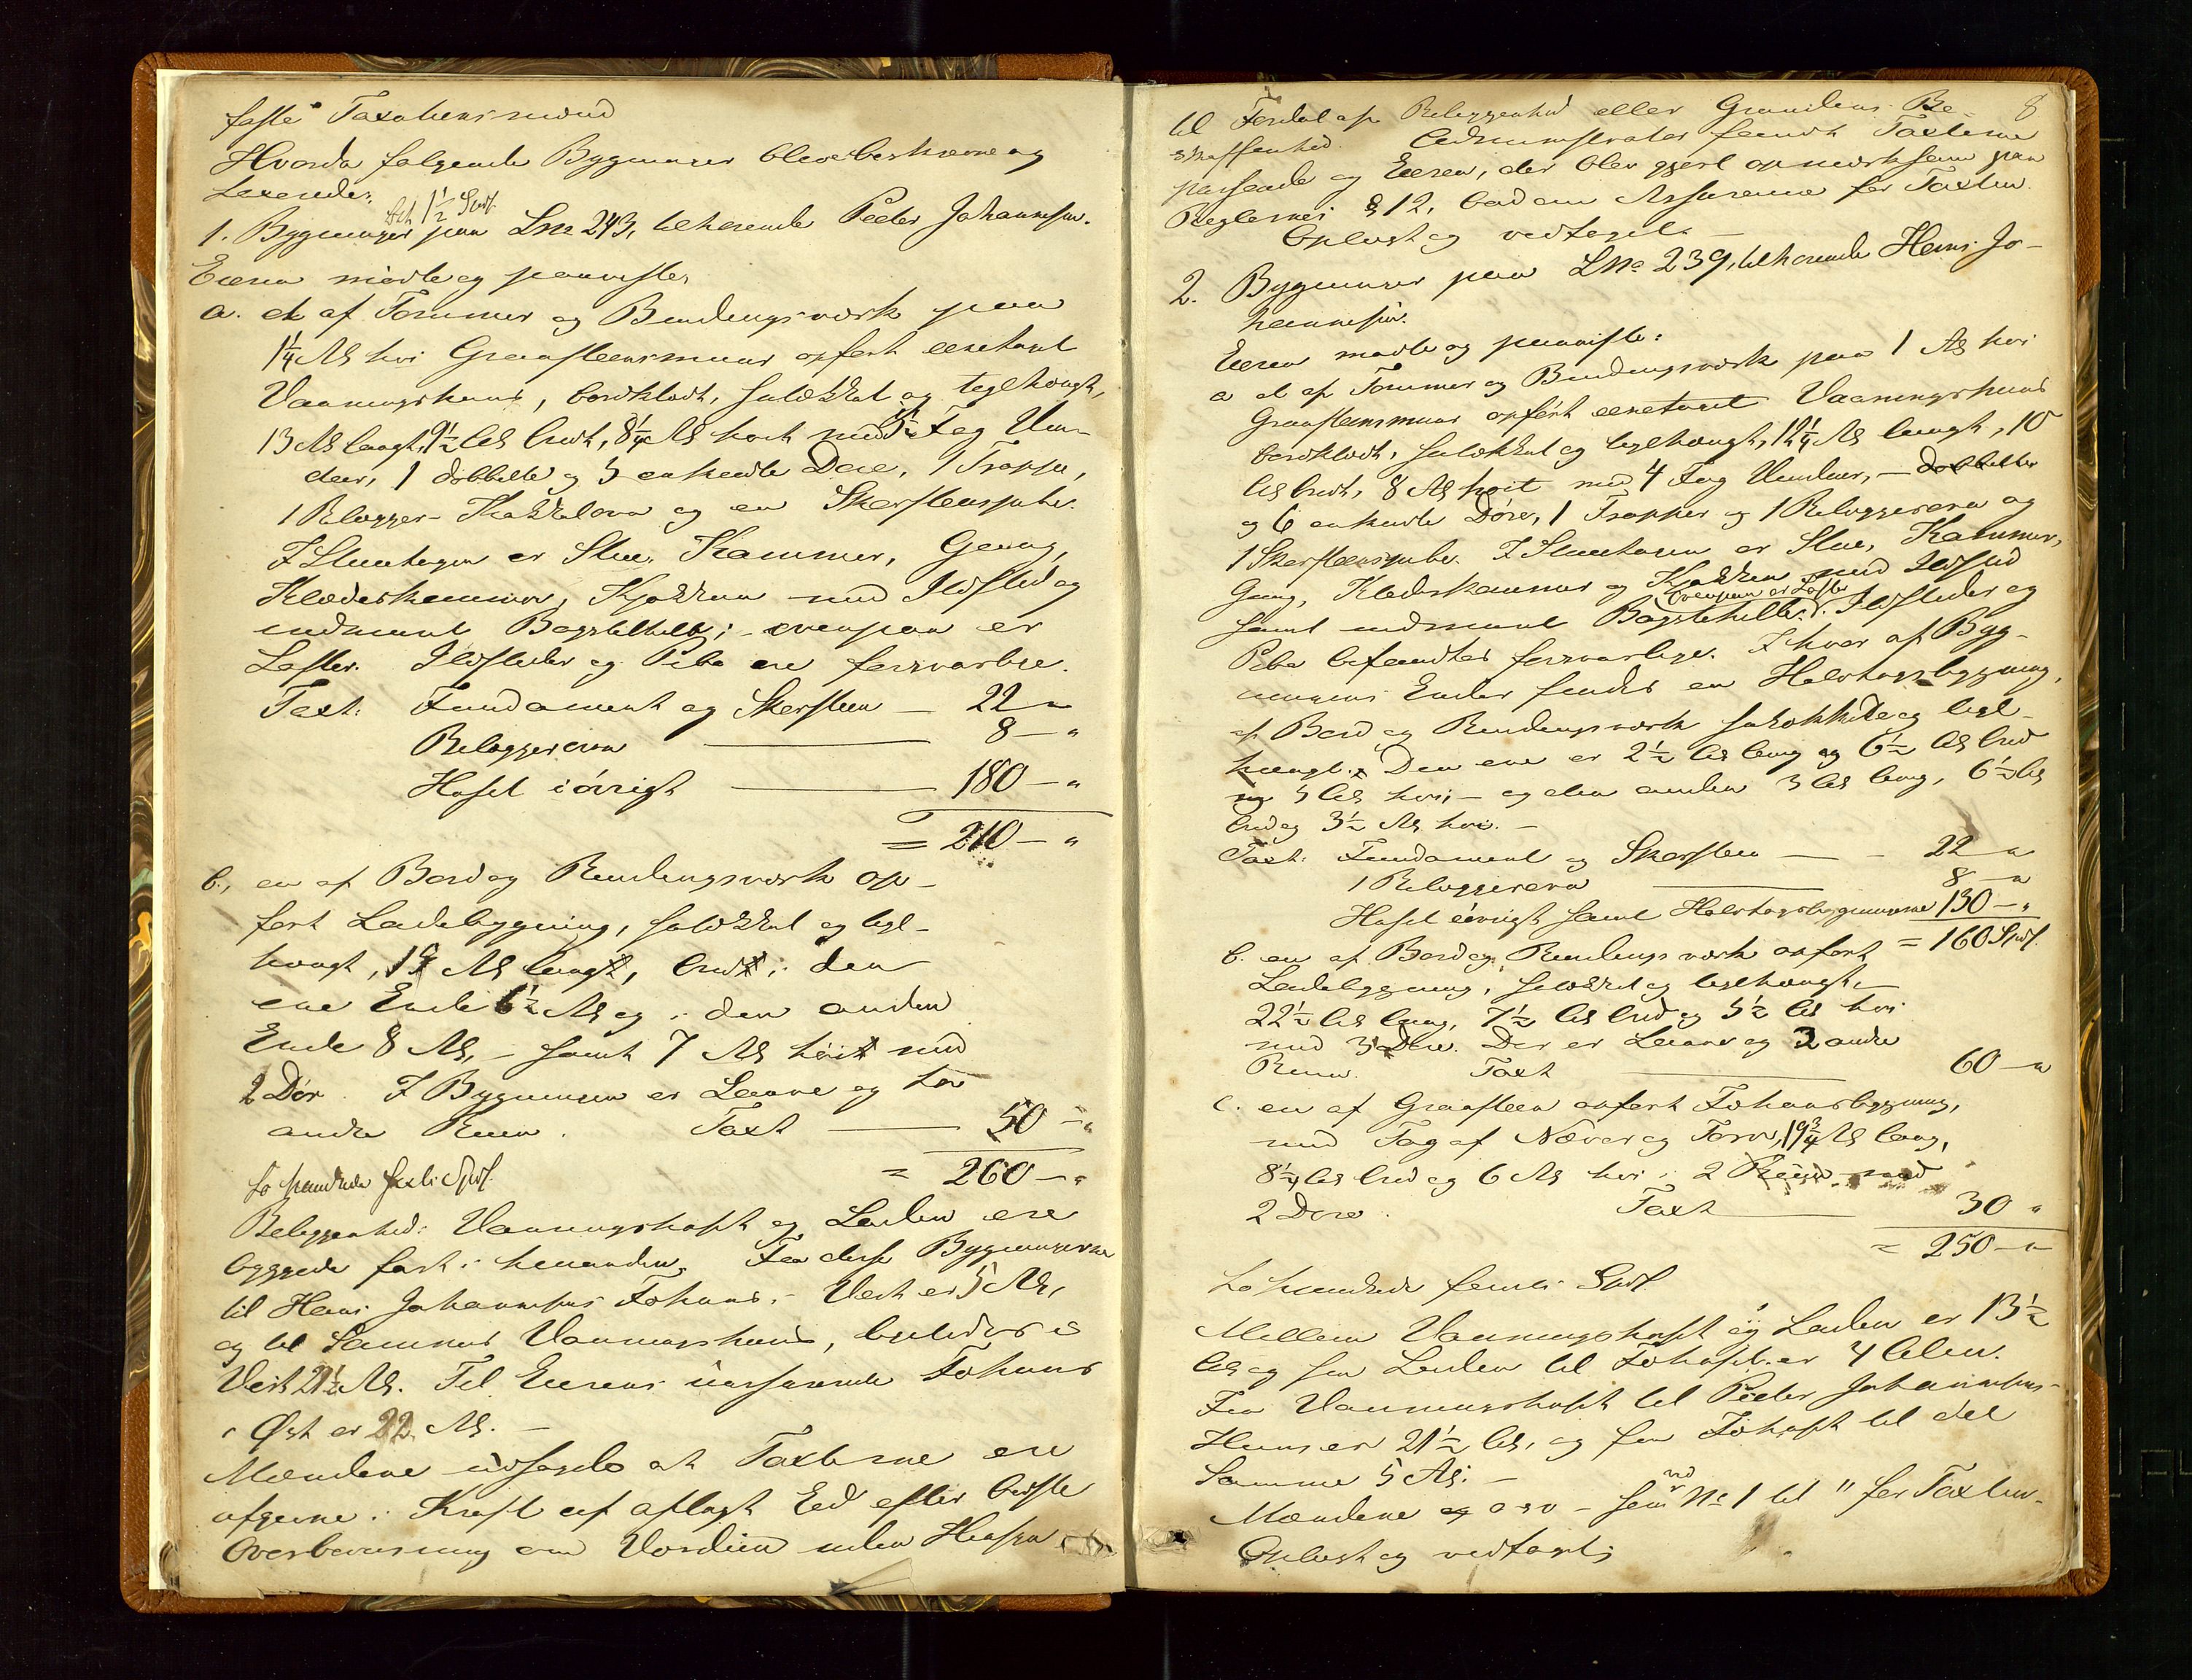 faste Taxationsmænd
Hvorda følgende Bygninger bleve beskrevne og
taxerede:
Ass. 1½ Spd.
1. Bygninger paa LNo 243, tilhørende Peder Johannessen.
Eieren mødte og paaviste,
a. et af Tømmer og Bindingsværk paa
1¼ Al. høi Graasteensmuur opført eenetages
Vaaningshuus, bordklædt, sulækket og teglhængt,
13 Al. langt, 9½ Al. bredt, 8¼ Al. høit med 5 Fag Vin-
duer, 1 dobbelt og 5 enkelte Døre, 1 Trappe,
1 Bilægger-Kakkelovn og en Skorsteenspibe.
I Stueetagen er Stue, Kammer, Gang,
Klædeskammer, Kjøkken med Ildsted og
indmuret Bagstehelle; ovenpaa er
Lofter. Ildsteder og Pibe ere forsvarlige.
Taxt: Fundament og Skorsteen — 22 — "
Bilæggerovn — 8 — "
Huset iøvrigt — 180 — "
= 210 — "
b., en af Bord og Bindingsværk op-
ført Ladebygning, sulækket og tegl-
hængt, 19 Al. langt, bredt i den
ene Ende 6½ Al. og i den anden
Ende 8 Al., — samt 7 Al. høit med
2 Dør. I Bygningen er Laave og to
andre Rum. Taxt — 50 — "
to hundrede sexti Spd. = 260 — "
Beliggenhed: Vaaningshuset og Laden ere
byggede fast i hinanden. Fra disse Bygningerne
til Hans Johannesens Fæhuus i Vest er 5 Al.,
og til Sammes Vaaningshuus, beliggende i
Vest 21½ Al. Til Eierens uassurerede Fæhuus
i Øst er 22 Al. —
Mændene udsagde at Taxterne ere
afgivne i Kraft af aflagt Eed efter bedste
Overbeviisning om Værdien uden Hensyn
8
til Fordel af Beliggenhed eller Grundens Be-
skaffenhed. Administrator fandt Taxterne
passende og Eieren, der blev gjort opmærksom paa
Reglernes § 12, bad om Assurance for Taxten.
Oplæst og vedtaget. —
2. Bygninger paa LNo 239, tilhørende Hans Jo-
hannessen.
Eieren mødte og paaviste:
a et af Tømmer og Bindingsværk paa 1 Al. høi
Graasteensmuur opført eenetages Vaaningshuus
bordklædt, sulækket og teglhængt, 12¼ Al. langt, 10
Al. bredt, 8 Al. høit med 4 Fag Vinduer, — dobbelte
og 6 enkelte Døre, 1 Trapper og 1 Bilæggerovn og
1 Skorsteenspibe. I Stueetagen er Stue, Kammer,
Gang, Klædeskammer og Kjøkken med Ildsted
samt indmuret Bagstehelle; ovenpaa er Lofter. Ildsteder og
Pibe befandtes forsvarlige. I hver af Byg-
ningens Ender findes en Halvtagsbygning,
af Bord og Bindingsværk sulækkede og tegl-
hængt. Den ene er 2½ Al. lang og 6½ Al. bred
og 5 Al. høi, — og den anden 3 Al. lang, 6½ Al.
bred og 3½ Al. høi. —
Taxt: Fundament og Skorsteen — 22 — "
1 Bilæggerovn — 8 — "
Huset iøvrigt samt Halvtagsbygningerne 130 — "
= 160 Spd.
b. en af Bord og Bindingsværk opført
Ladebygning, sulækket og teglhængt —
22½ Al. lang, 7½ Al. bred og 5½ Al. høi
med 3 Døre. Der er Laave og 2 andre
Rum. Taxt — 60 — "
c. en af Graasteen opført Fæhuusbygning,
med Tag af Næver og Torv, 19¾ Al. lang,
8¼ Al. bred og 6 Al. høi i 2 Rum med
2 Døre. Taxt — 30 "
= 250 — "
to hundrede femti Spd.
Mellem Vaaningshuset og Laden er 13½
Al. og fra Laden til Fæhuset er 4 Alen.
Fra Vaaningshuset til Peder Johannesens
Huus er 21½ Al., og fra Fæhuset til det
Samme 5 Al. —
Mændene o s v — som ved No 1 til " for Taxten.
Oplæst og vedtaget;